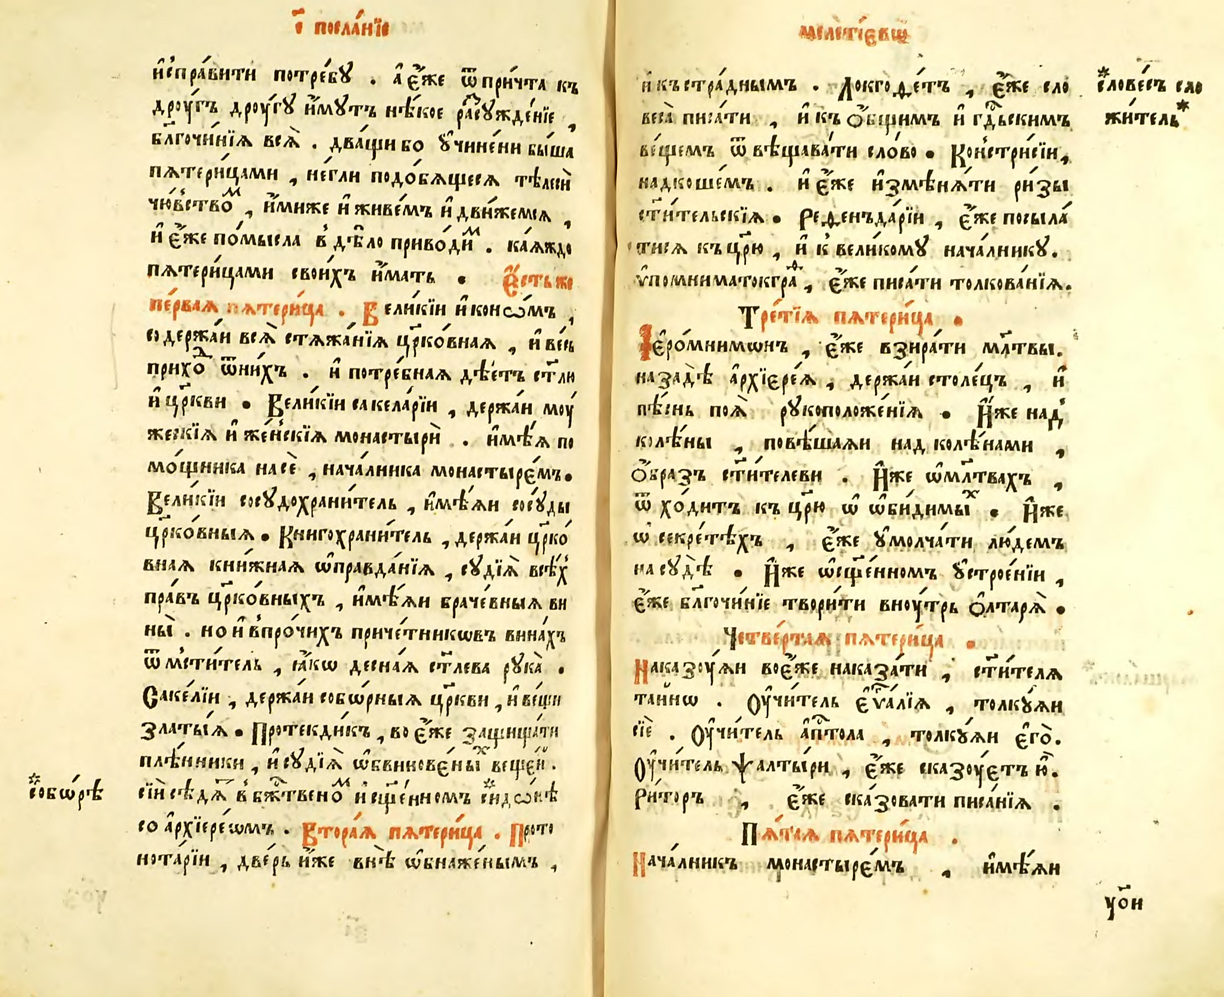 г҃ посла́нїе
и҆спра́вити потре́бꙋ . а҆ є҆́же ѿ при́чта къ
дрꙋ́гъ дрꙋ́гꙋ и҆́мꙋтъ нѣ́кое расꙋжде́нїе ,
бл҃гочи́нїѧ всѧ̀ . два́щи бо ᲂу҆чине́ни бы́ша
пѧтери́цами , не́гли подо́бѧщесѧ тѣле́си
чю́вствоⷨ , и҆́миже и҆ живе́мъ и҆ дви́жемсѧ ,
и҆ є҆́же по́мысла в дѣ́ло приво́диⷨ . ка́ѧждо
пѧтери́цами свои́хъ и҆́мать . Є҆́сть же
пе́рваѧ пѧтери́ца . Вели́кїи и҆коно́мъ ,
содержа́и всѧ̀ стѧжа́нїѧ цр҃ко́внаѧ , и҆ ве́сь
прихоⷣ ѿ ни́хъ . и҆ потре́бнаѧ дѣ́етъ ст҃ли
и҆ цр҃кви . Вели́кїи сакела́рїи , держа́и мꙋ́
же́скїѧ и҆ же́нскїѧ монастырѝ . и҆мѣ́ѧ по
мо́щника на сѐ , нача́лника монастыре́мъ .
Вели́кїи сосꙋдохрани́тель , и҆мѣ́ѧи сосꙋ́ды
цр҃ко́вныѧ . Книгохрани́тель , держа́и цр҃ко́
внаѧ кни́жнаѧ ѡ҆правда́нїѧ , сꙋдїѧ̀ всѣ́хъ
пра́въ цр҃ко́вныхъ , и҆мѣ́ѧи браче́вныѧ ви
ны̀ . но и҆ в про́чихъ приче́тникѡвъ вина́хъ
ѿ мсти́тель , ꙗ҆́кѡ десна́ѧ ст҃лева рꙋка̀ .
Саке́лїи , держа́и собѡ́рныѧ цр҃кви , и҆ ве́щи
златы́ѧ . Протекди́къ , во є҆́же защища́ти
плѣ́нники , и҆ сꙋдїѧ̀ ѡ҆бвинове́ныⷯ веще́и .
сїи сѣдѧ́т в бж҃твеноⷨ и҆ сщ҃е́нномъ *си́ндонѣ
со а҆рхїере́ѡмъ . Втора́ѧ пѧтери́ца . Прото
нота́рїи , две́рь и҆́же внѣ̀ ѡ҆бнаже́нымъ ,
*собѡ́рѣ
меле́тїевѡ
и҆ къ стра́днымъ . Локгоѳе́тъ , є҆́же сло
веса̀ писа́ти , и҆ къ ѻ҆́бщимъ и҆ гдⷭ҇ьскимъ
ве́щемъ ѿвѣщава́ти сло́во . Кѡнстри́сїи ,
над коше́мъ . и҆ є҆́же и҆змѣнѧ́ти ри́зы
ст҃и́тельскїѧ . Реѳенъда́рїи , є҆́же посыла́
тисѧ къ цр҃ю , и҆ к вели́комꙋ нача́лникꙋ .
ᲂу҆помниматокграⷴ , є҆́же писа́ти толкова́нїѧ .
Тре́тїѧ пѧтери́ца .
І҆еро́мнимѡнъ , є҆́же взира́ти мл҃твы .
назадѣ̀ а҆рхїере́ѧ , держа́и столе́цъ , и҆
пѣ́снь поѧ̀ рꙋкоположе́нїѧ . И҆́же над
колѣ́ны , повѣша́ѧи над колѣ́нами ,
ѻ҆́бразъ ст҃и́телеви . И҆́же ѡ҆ мл҃твахъ ,
ѿ хо́дитъ къ цр҃ю ѡ҆ ѡ҆би́димыⷯ . И҆́же
ѡ҆ секре́тѣхъ , є҆́же ᲂу҆молча́ти лю́демъ
на сꙋдѣ̀ . И҆́же ѡ҆ сщ҃е́нномъ ᲂу҆строе́нїи ,
є҆́же бл҃гочи́нїе твори́ти внꙋ́трь ѻ҆лтарѧ̀ .
Четве́ртаѧ пѧтери́ца .
Наказꙋ́ѧи во є҆́же наказа́ти , ст҃и́телѧ
та́инѡ . Оу҆чи́тель є҆ѵⷢ҇а́лїѧ , толкꙋ́ѧи
сїѐ . Оу҆чи́тель а҆пⷭ҇тола , толкꙋ́ѧи є҆го̀ .
Оу҆чи́тель ѱалты́ри , є҆́же сказꙋ́етъ ю҆̀ .
Ри́торъ , є҆́же ска́зовати писа́нїѧ .
Пѧ́таѧ пѧтери́ца .
Нача́лникъ монастыре́мъ , и҆мѣ́ѧи
*слове́съ сло
жи́тель*
уѻ҃и